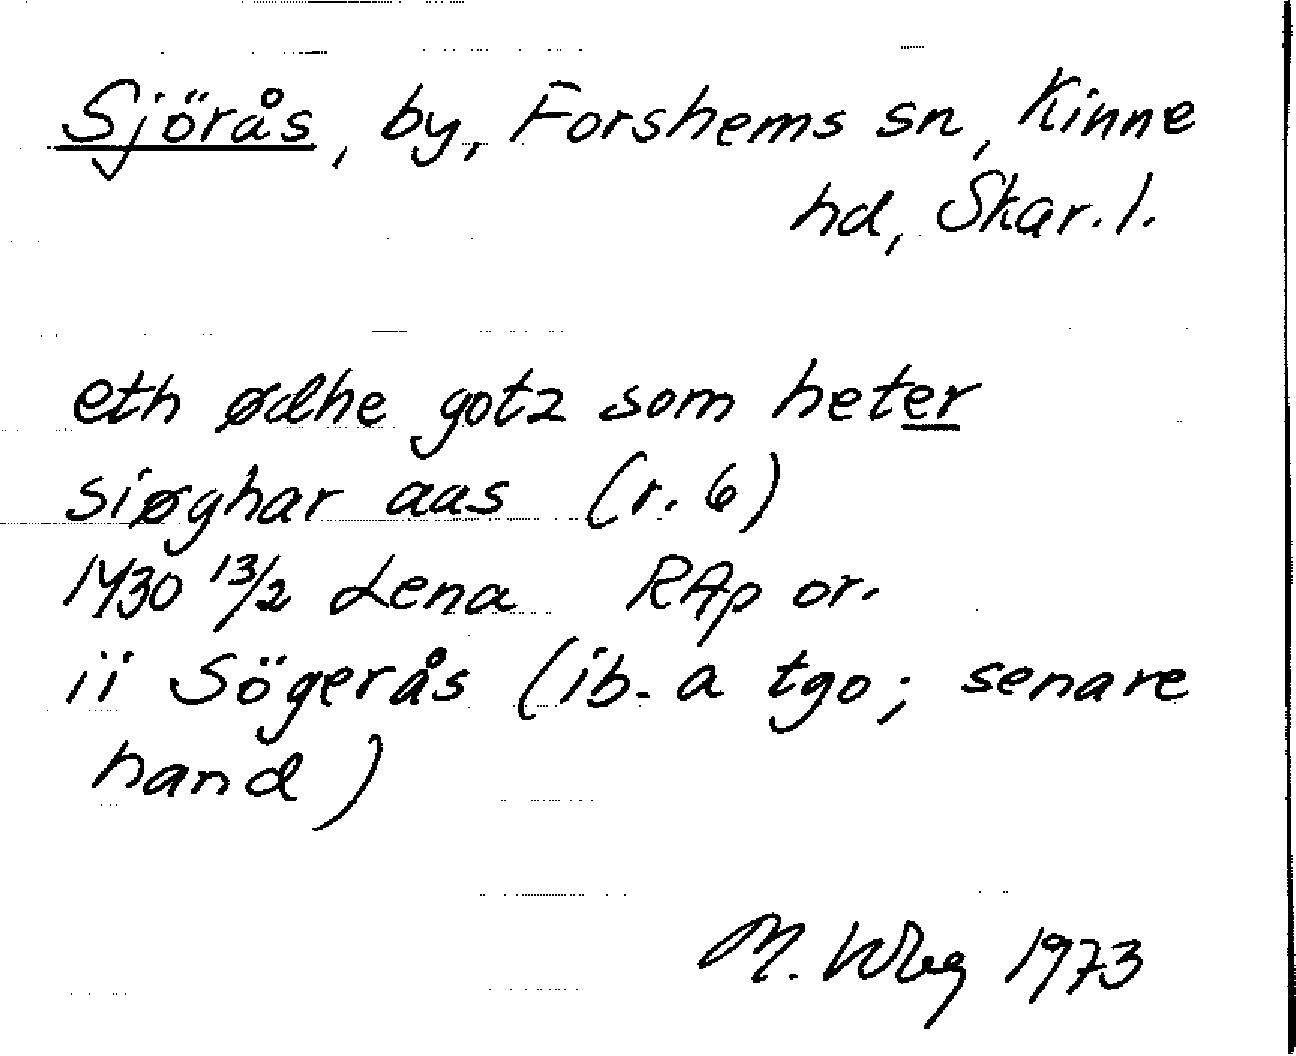 Sjörås, by, Forshems sn, Kinne
hd, Skar. l.
eth ødhe gotz som heter
siøghar aas (r. 6)
1430 13/2 Lena RAp or.
ii Sögerås (ib. a tgo; senare
hand)
M. Wbg 1973